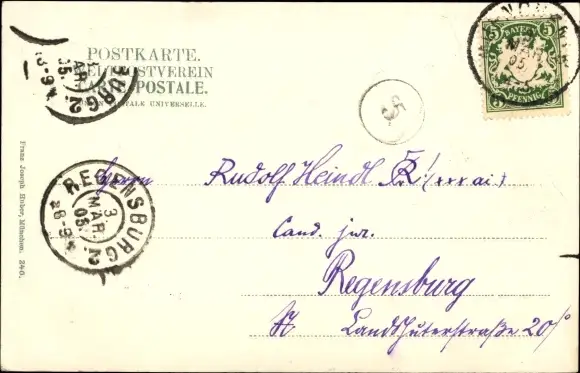 POSTKARTE.
WELTPOSTVEREIN
POSTALE.
POSTALE UNIVERSELLE.
BAYERN
5 5
PFENNIG
MAR
05
BURG. 2.
MAR
05
8-9
REGENSBURG 2.
3
MAR.
05.
8-9
Franz Joseph Huber, München. 246.
Herrn Rudolf Heindl (xxx ai)
Cand. jur.
Regensburg
Landshuterstraße 20/